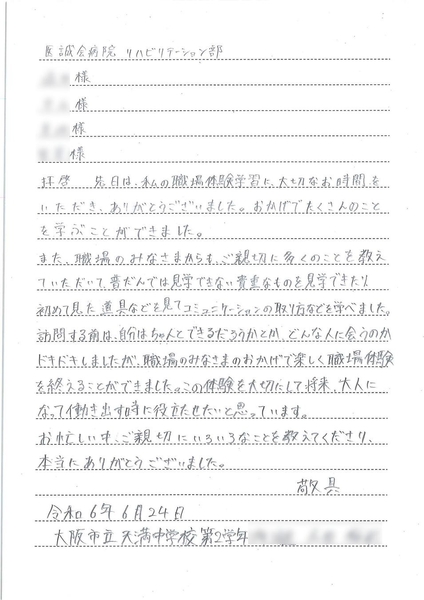 医誠会病院 リハビリテーション部
様
様
様
様
拝啓 先日は、私の職場体験学習に、大切なお時間を
いただき、ありがとうございました。おかげでたくさんのこと
を学ぶことができました。
また、職場のみなさまからも、ご親切に多くのことを教え
ていただいて、普だんでは見学できない貴重なものを見学できたり
初めて見た道具などを見てコミュニケーションの取り方などを学べました。
訪問する前は、自分はちゃんとできるだろうかとか、どんな人に会うのか
ドキドキしましたが、職場のみなさまのおかげで楽しく職場体験
を終えることができました。この体験を大切にして将来、大人に
なって働き出す時に役立たせたいと思っています。
お忙しい中、ご親切にいろいろなことを教えてくださり、
本当にありがとうございました。
敬具
令和6年6月24日
大阪市立天満中学校 第2学年